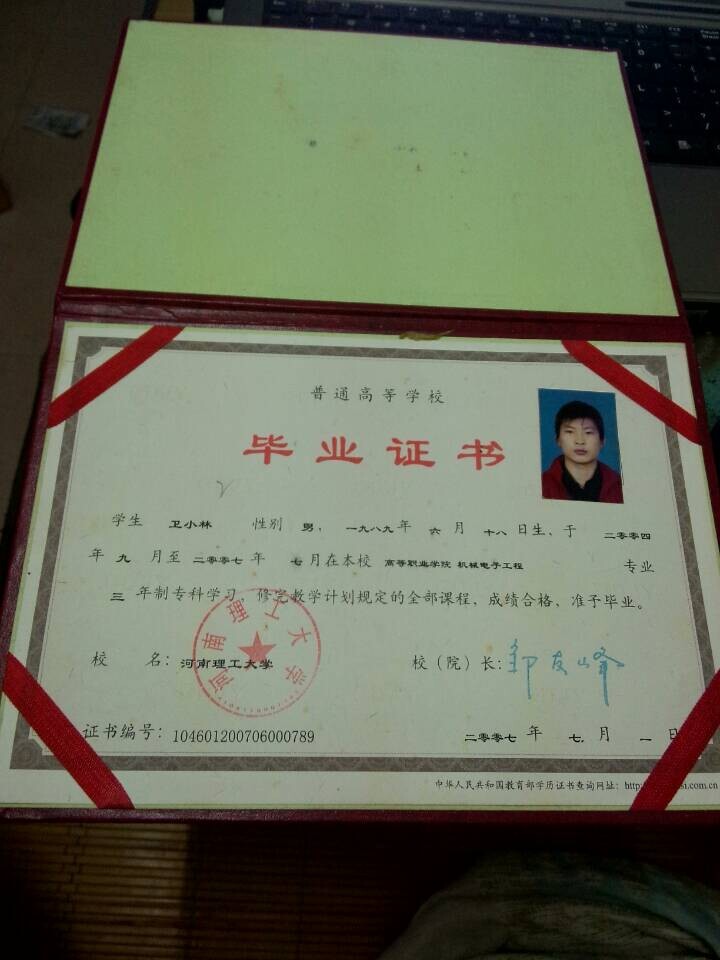 普通高等学校
毕业证书
学生 卫小林 性别 男，一九八九年 六 月 十八 日生、于 二〇〇四
年 九 月至 二〇〇七 年 七月在本校 高等职业学院 机械电子工程 专业
三 年制专科学习，修完教学计划规定的全部课程，成绩合格、准予毕业。
校 名：河南理工大学
校（院）长：邹友峰
河南理工大学
证书编号：104601200706000789
二〇〇七 年 七 月 一 日
中华人民共和国教育部学历证书查询网址：http
si.com.cn